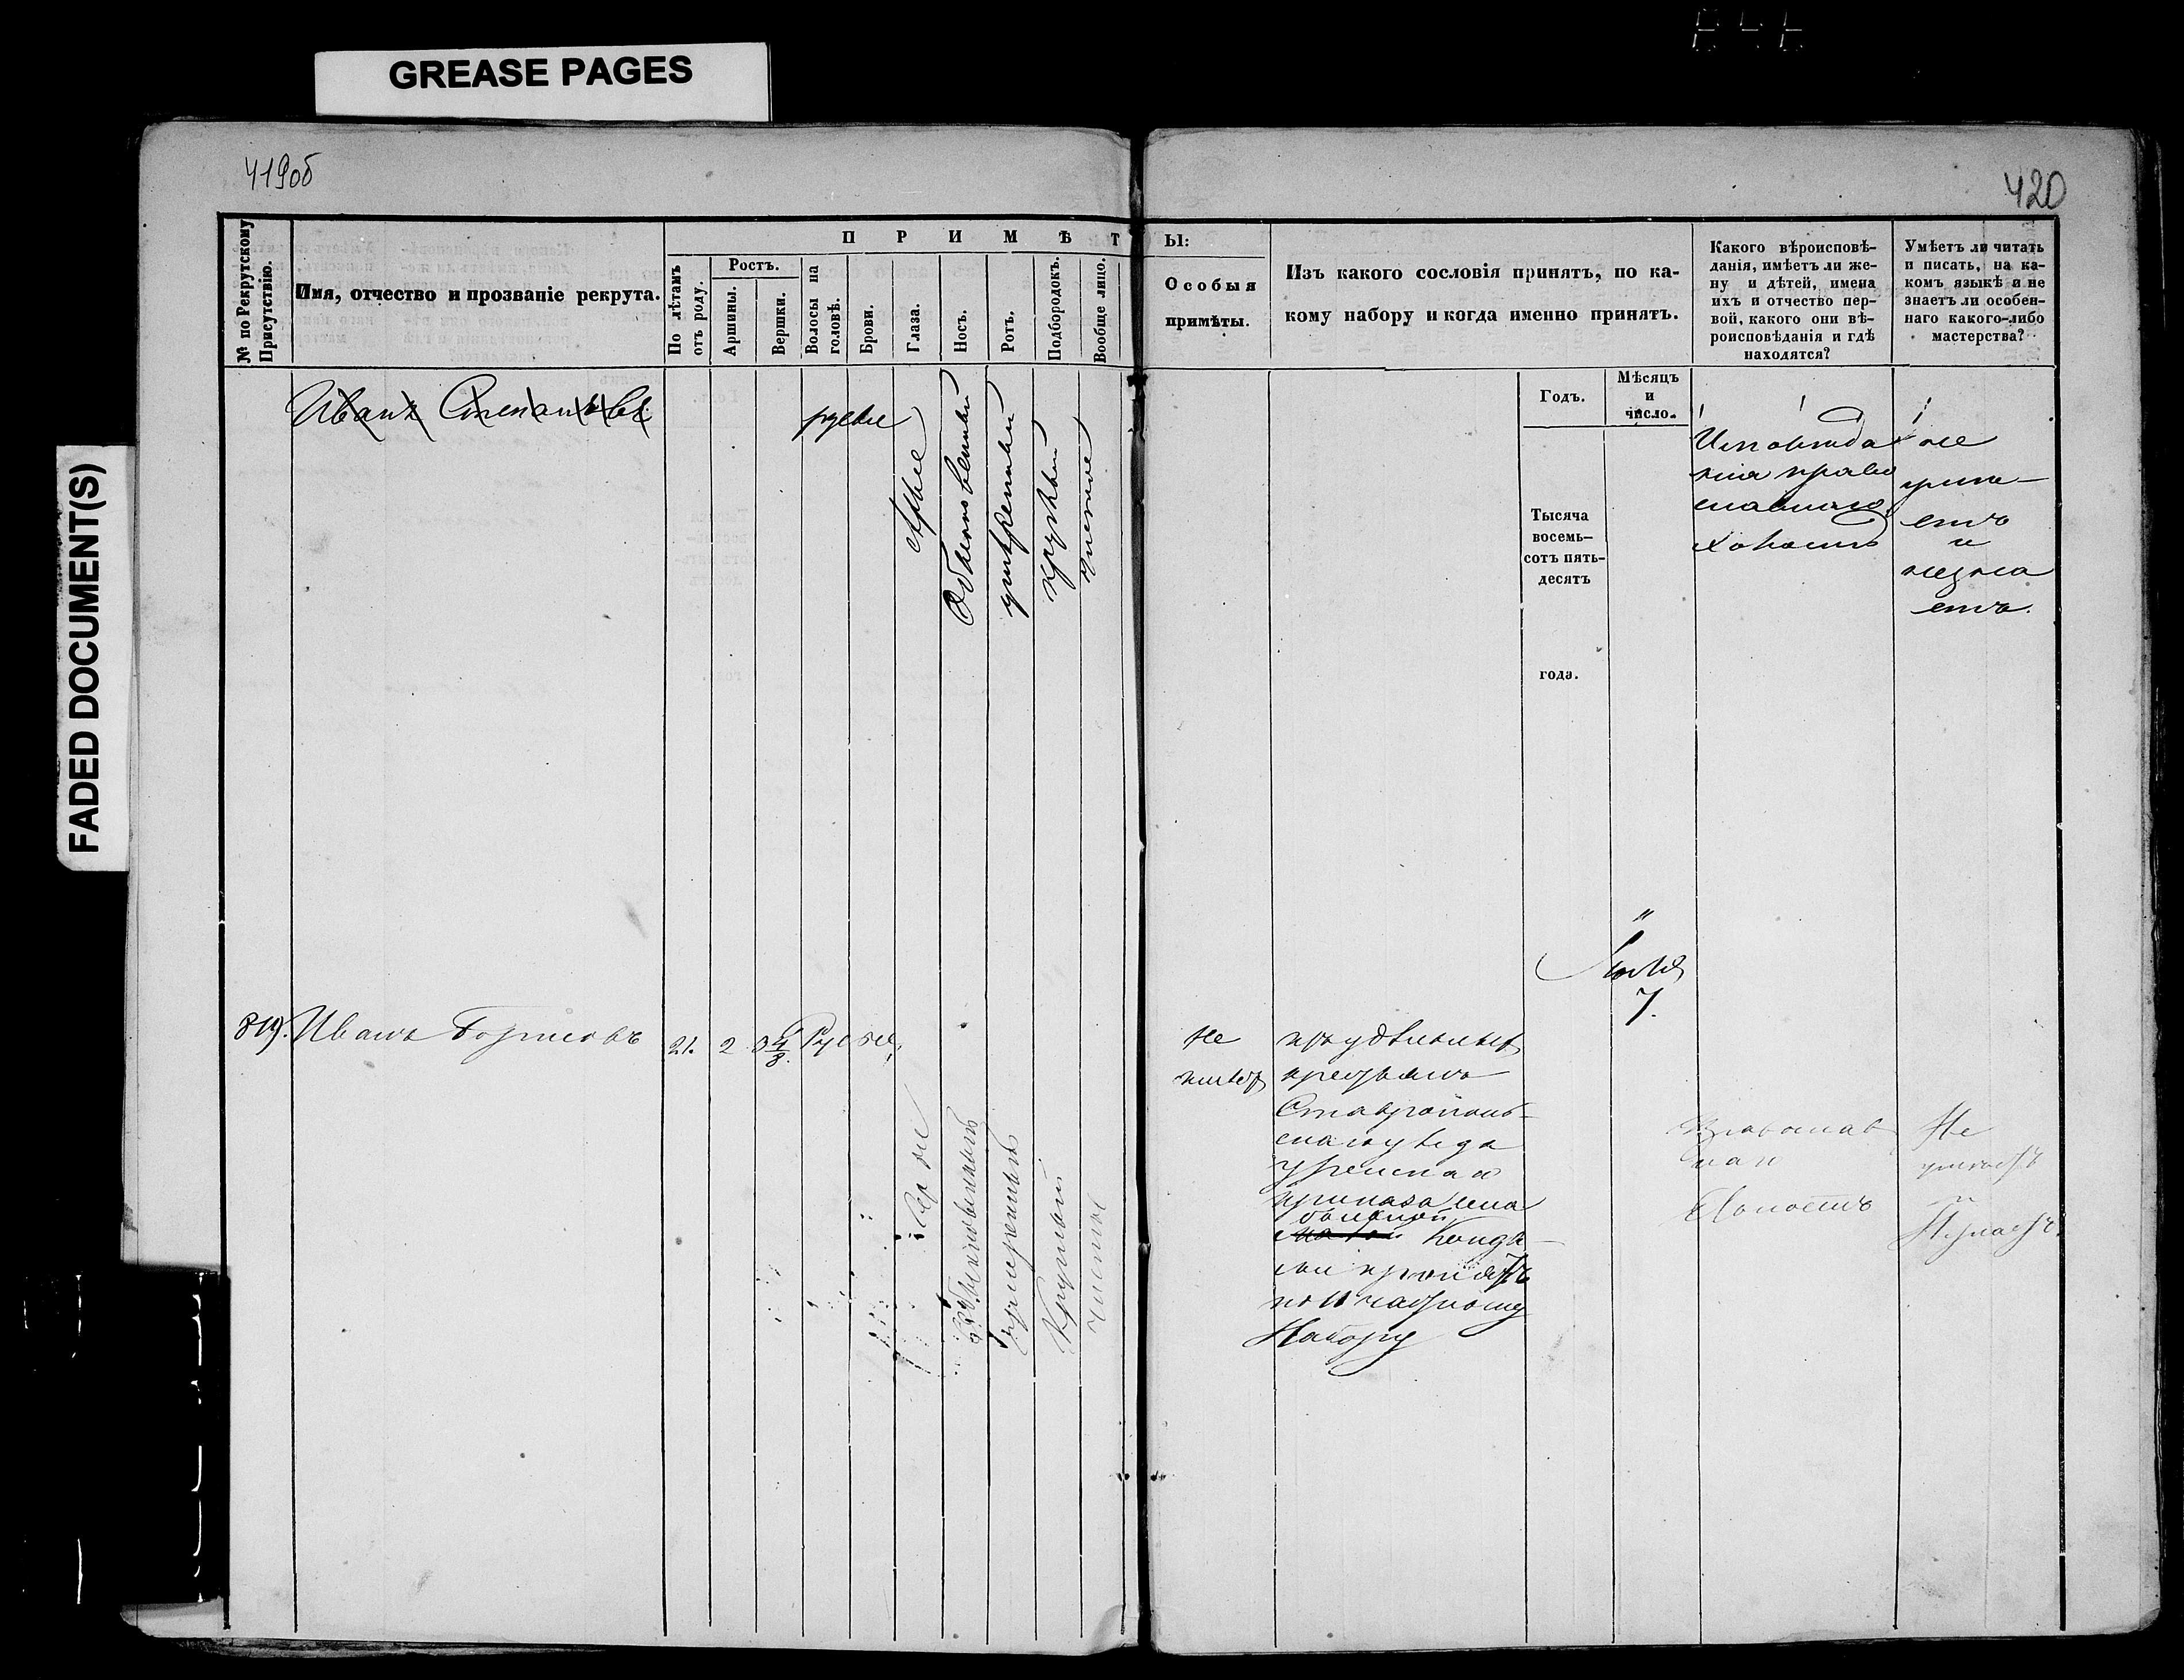 GREASE PAGES
FADED DOCUMENT(S)
419об
420
№ по Рекрутскому Присутствію.
Имя, отчество и прозваніе рекрута.
П Р И М Ѣ Т Ы:
По лѣтамъ отъ роду.
Ростъ.
Аршины.
Вершки.
Волосы на головѣ.
Брови.
Глаза.
Носъ.
Ротъ.
Подбородокъ.
Вообще лицо.
Особыя
примѣты.
Изъ какого сословія принятъ, по ка-
кому набору и когда именно принятъ.
Какого вѣроисповѣ-
данія, имѣетъ ли же-
ну и дѣтей, имена
ихъ и отчество пер-
вой, какого они вѣ-
роисповѣданія и гдѣ
находятся?
Умѣетъ ли читать
и писать, на ка-
комъ языкѣ и не
знаетъ ли особен-
наго какого-либо
мастерства?
Годъ.
Мѣсяцъ
и
число.
Тысяча
восемь-
сотъ пять-
десятъ
года.
Иванъ Степановъ
русые
сѣрые
Обыкновенный
умѣренный
круглый
чистое
Исповѣда
нія право
славнаго
холостъ
не
умѣ-
етъ
и
незна
етъ.
Іюля
7.
819.
Иванъ Борисовъ
21.
2
3 4/8
Русые
Сѣрые
Обыкновенный
умѣренный
Круглый
чистое
Не
имѣетъ
изъ удѣльныхъ
крестьянъ
Ставрополь-
скаго уѣзда
приказа села
принятъ
по 11 частному
Набору
Православ
наго
Холостъ
Не
умѣетъ
и
Незнаетъ.